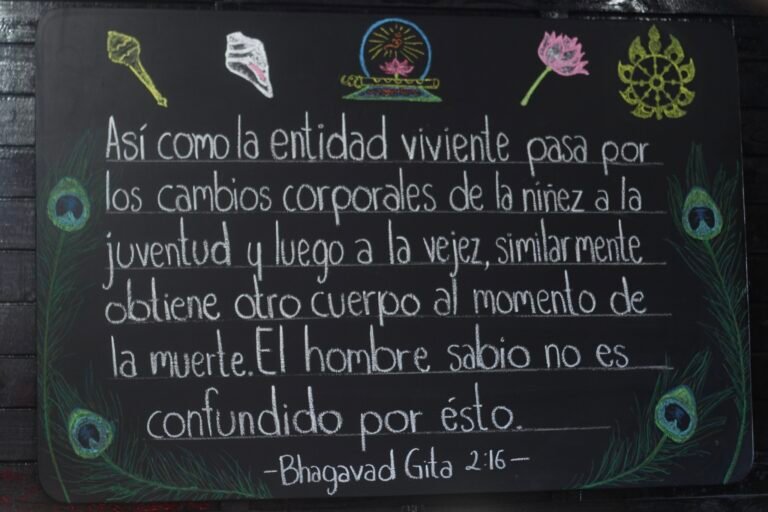 Así como la entidad viviente pasa por
los cambios corporales de la niñez a la
juventud y luego a la vejez, similarmente
obtiene otro cuerpo al momento de
la muerte. El hombre sabio no es
confundido por ésto.
-Bhagavad Gita 2:16-